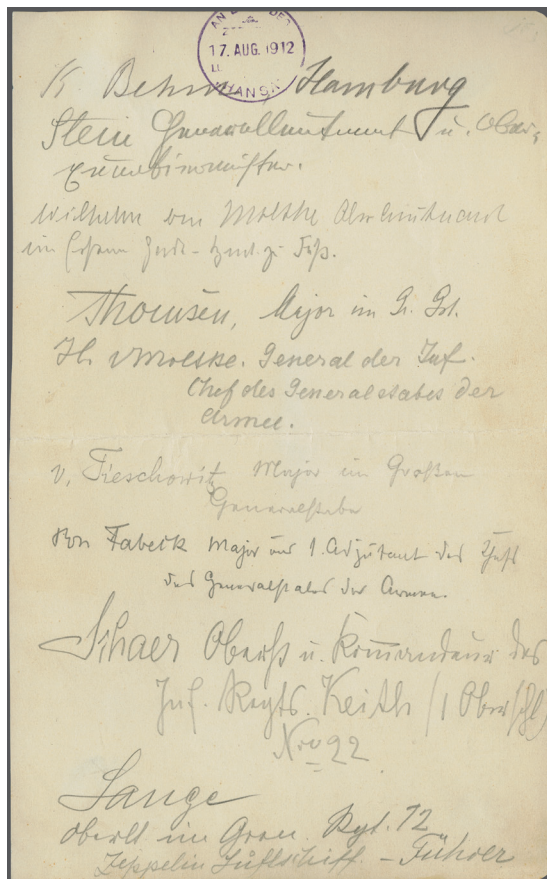 AN BORD DES
17. AUG. 1912
HANSA
K Behm Hamburg
Stein Generalleutnant u. Ober-
quartiermeister.
Wilhelm von Moltke Oberleutnant
im Garde- Rgt. z. Fuß.
Thomsen, Major im Gr. Gst.
H. v Moltke. General der Inf.
Chef des Generalstabes der
Armee.
v. Tieschowitz Major im Großen
Generalstabe
von Fabeck Major und 1. Adjutant des Chefs
des Generalstabes der Armee.
Schaer Oberst u. Kommandeur des
Inf. Regts. Keith (1 Oberschl)
Nro 22
Lange
Oberlt im Gren. Rgt. 12
Zeppelin Luftschiff - Führer